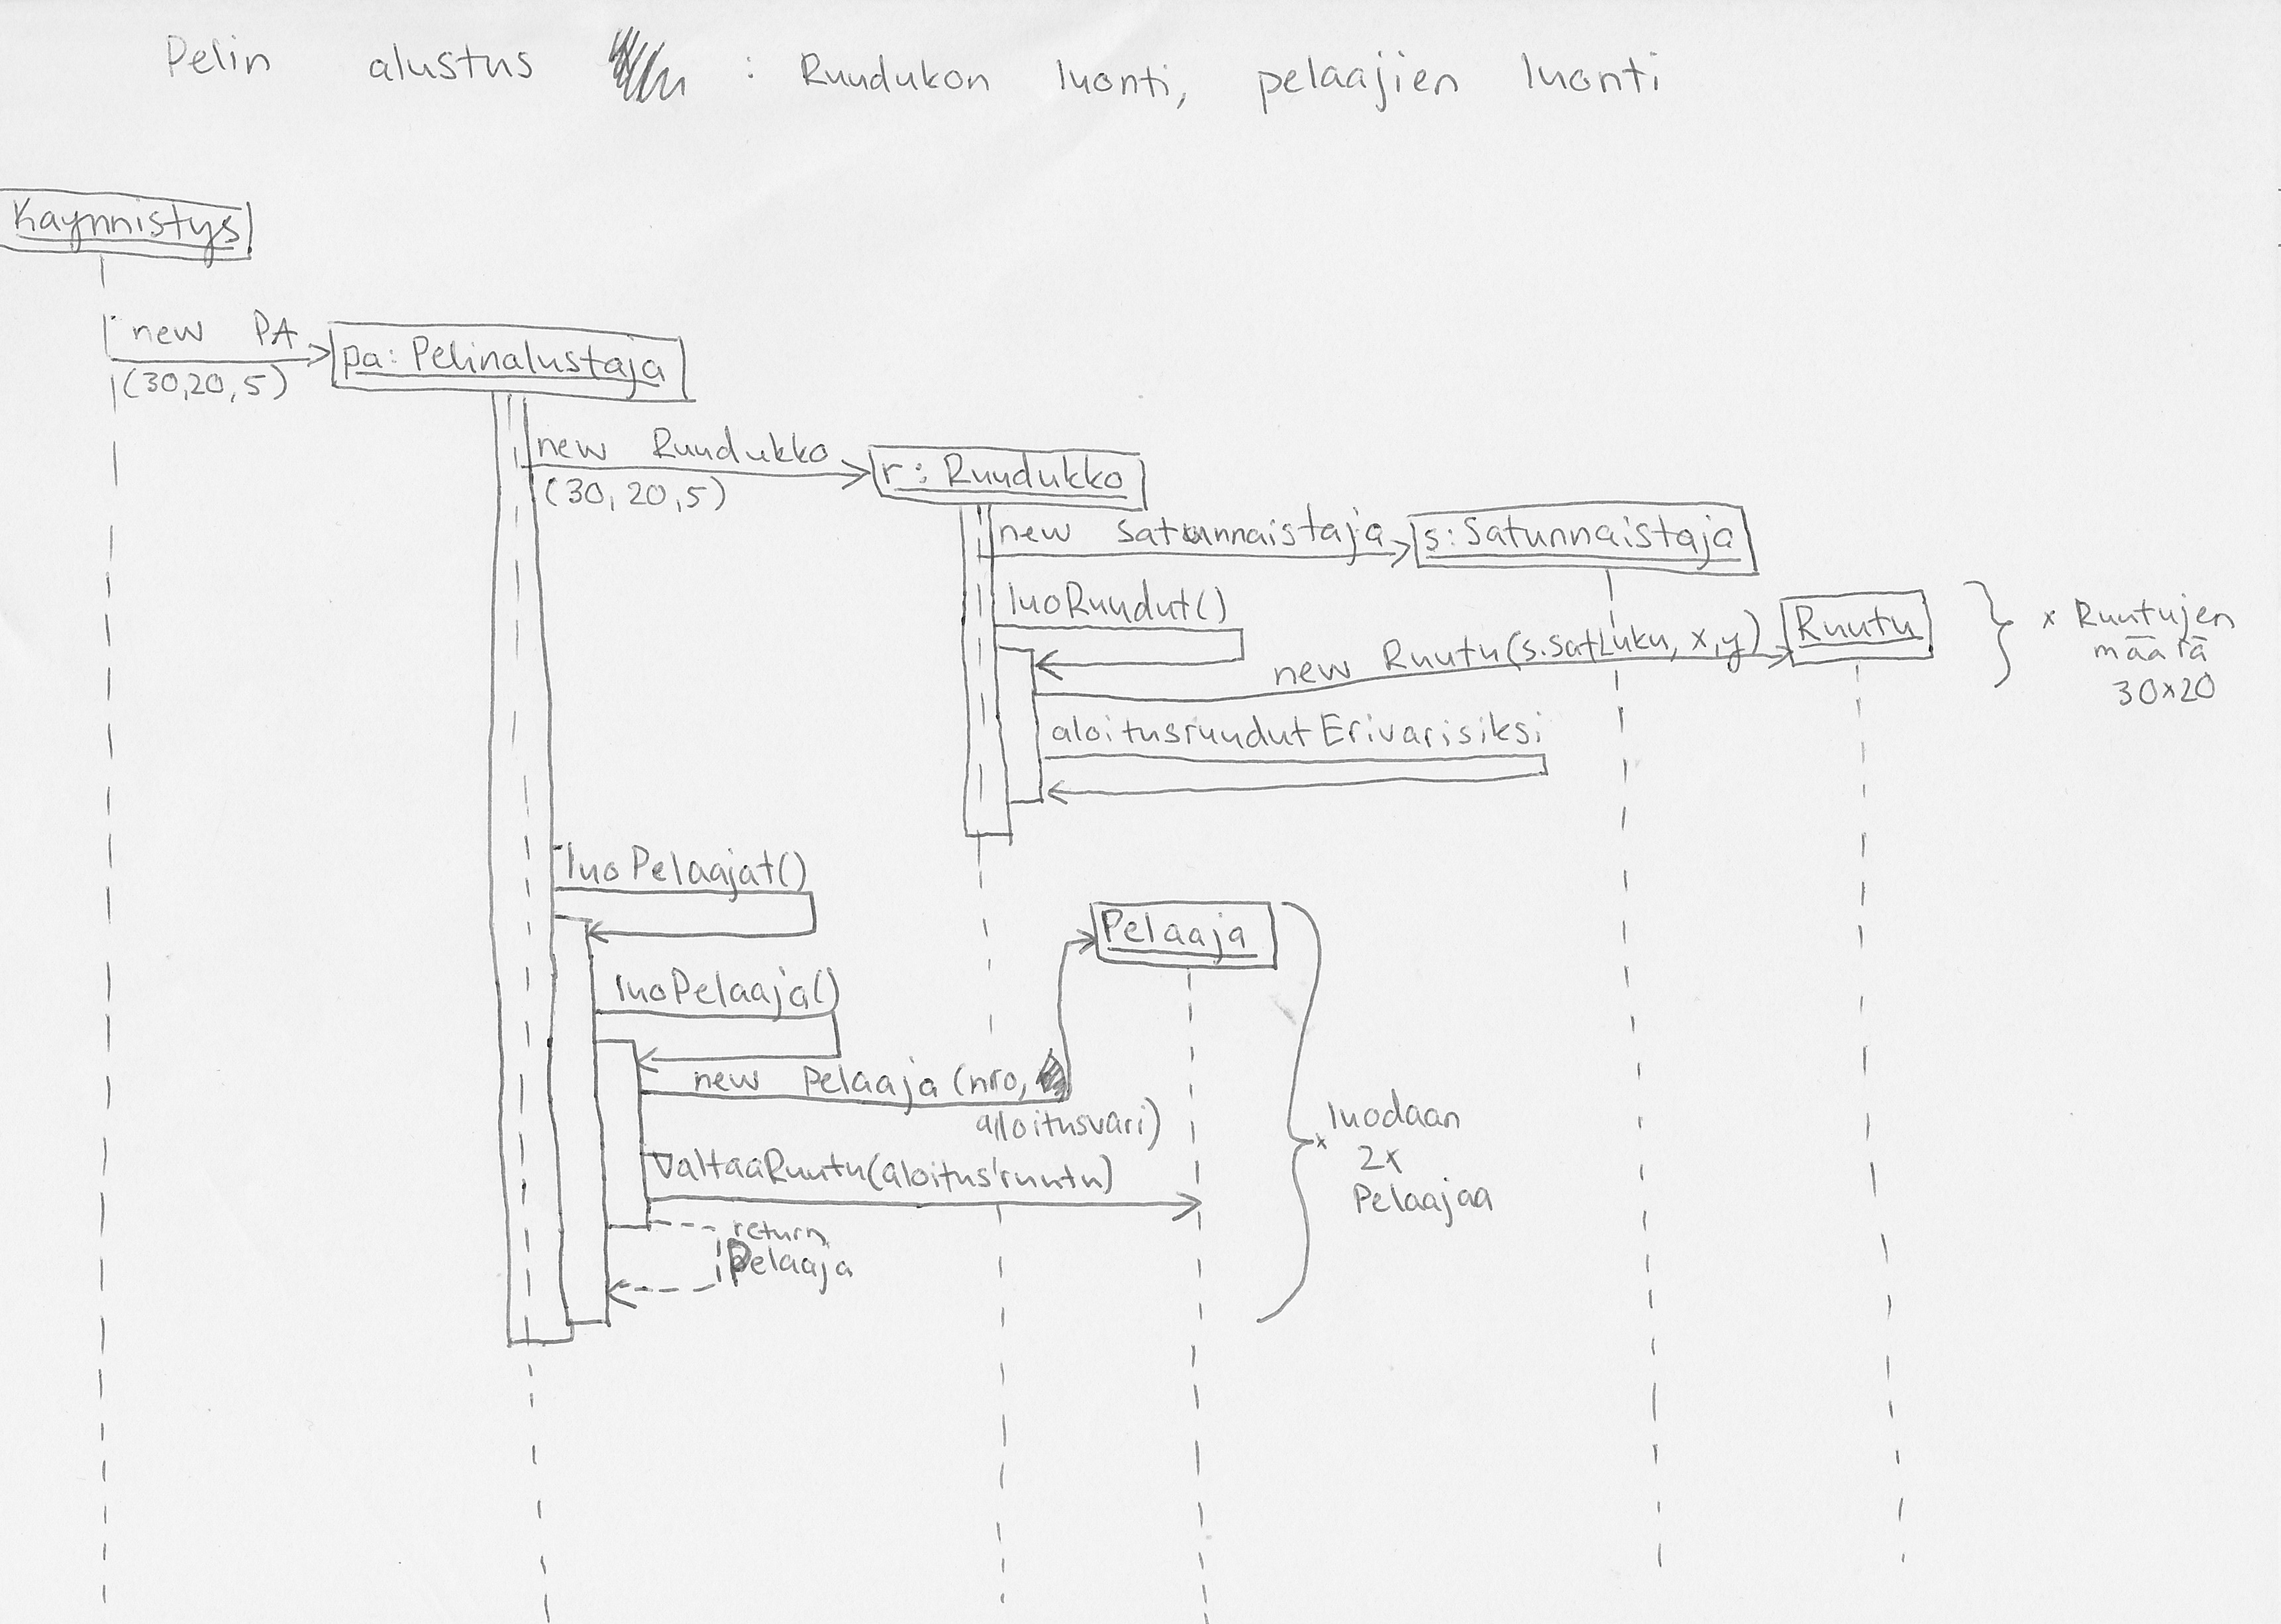 Pelin alustus : Ruudukon luonti, pelaajien luonti
Kaynnistys
new PA
(30,20,5)
pa: Pelinalustaja
new Ruudukko
(30, 20,5)
r: Ruudukko
new satunnaistaja
s: Satunnaistaja
luoRuudut()
new Ruutu(s.satLuku, x,y)
Ruutu
x Ruutujen
määrä
30x20
aloitusruudutErivarisiksi
luoPelaajat()
Pelaaja
luoPelaaja()
new Pelaaja(nro,
aloitusvari)
valtaaRuutu(aloitusruutu)
return
Pelaaja
x luodaan
2x
Pelaajaa